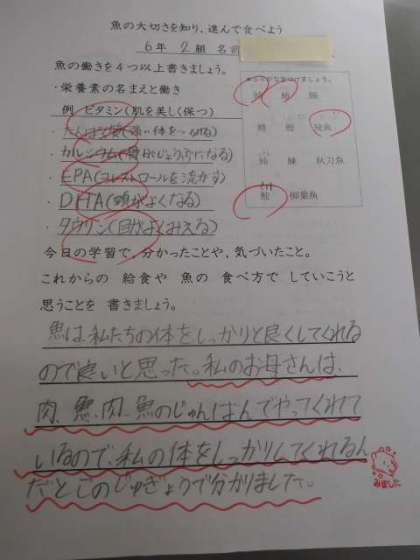 魚の大切さを知り、進んで食べよう
6年 2組 名前
魚の働きを4つ以上書きましょう。
・栄養素の名まえと働き
例 ビタミン(肌を美しく保つ)
・たんぱく質(強い体をつくる)
・カルシウム(骨がじょうぶになる)
・EPA(コレストロールを流かす)
・DHA(頭がよくなる)
・タウリン(目がよくみえる)
秋刀魚
柳葉魚
今日の学習で、分かったことや、気づいたこと。
これからの 給食や 魚の 食べ方で していこうと
思うことを 書きましょう。
魚は、私たちの体をしっかりと良くしてくれる
ので良いと思った。私のお母さんは、
肉、魚、肉、魚のじゅんばんでやってくれて
いるので、私の体をしっかりしてくれるん
だとこのじゅぎょうで分かりました。
みました